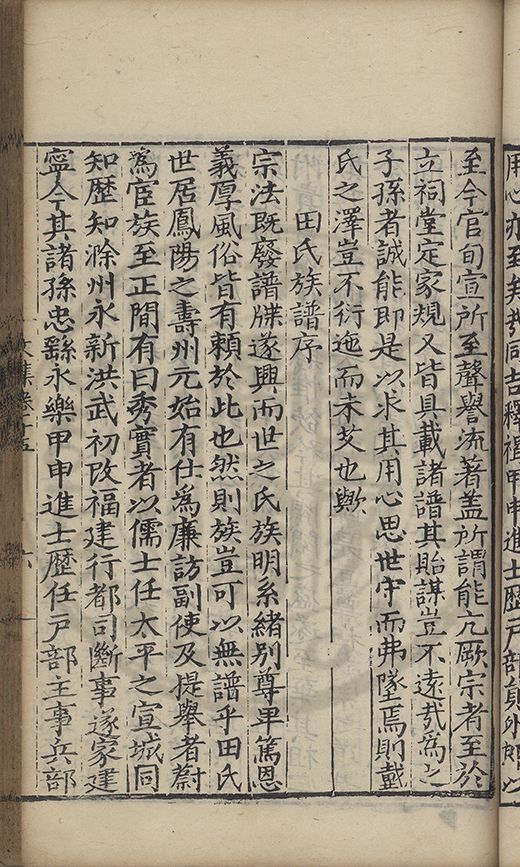 用心亦至矣哉同吉釋褐甲申進士歷戶部員外郎以
至今官旬宣所至聲譽流著蓋所謂能亢厥宗者至於
立祠堂定家規又皆具載諸譜其貽謀豈不遠哉爲之
子孫者誠能即是以求其用心思世守而弗墜焉則戴
氏之澤豈不衍迤而未艾也歟
田氏族譜序
宗法旣廢譜牒遂興而世之氏族明系緒別尊卑篤恩
義厚風俗皆有賴於此也然則族豈可以無譜乎田氏
世居鳳陽之壽州元始有仕爲廉訪副使及提舉者蔚
爲宦族至正間有曰秀實者以儒士任太平之宣城同
知歷知滁州永新洪武初改福建行都司斷事遂家建
寧今其諸孫忠繇永樂甲申進士歷任戸部主事兵部
文集卷十五